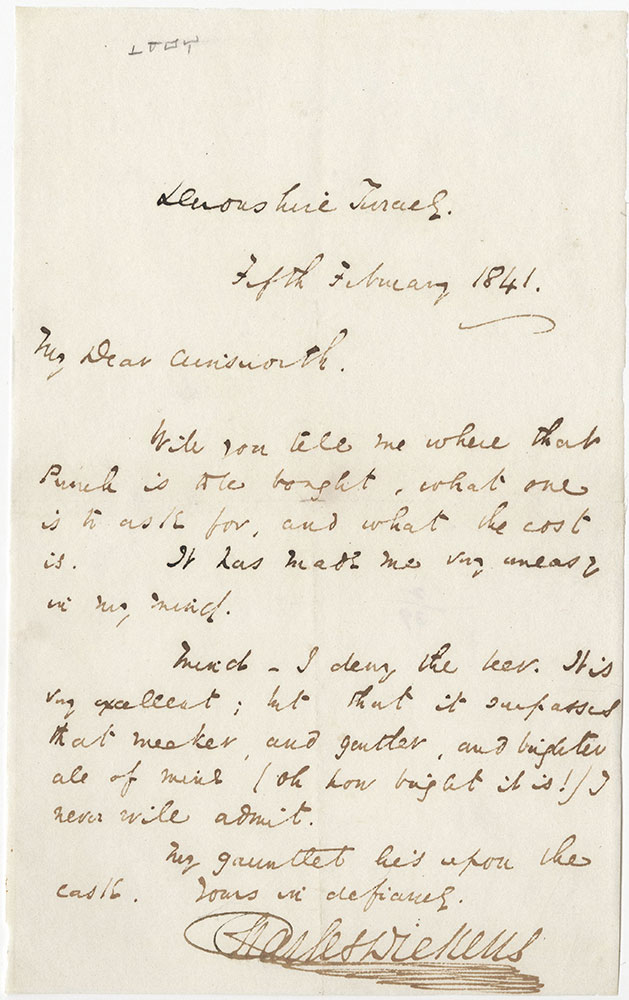 Devonshire Terrace.
Fifth February 1841.
My Dear Ainsworth.
Will you tell me where that
Punch is to be bought, what one
is to ask for, and what the cost
is. It has made me very uneasy
in my mind.
Mind – I deny the beer. It is
very excellent; but that it surpasses
that meeker, and gentler, and brighter
ale of mine (oh how bright it is!) I
never will admit.
My gauntlet lies upon the
cask. Yours in defiance.
Charles Dickens